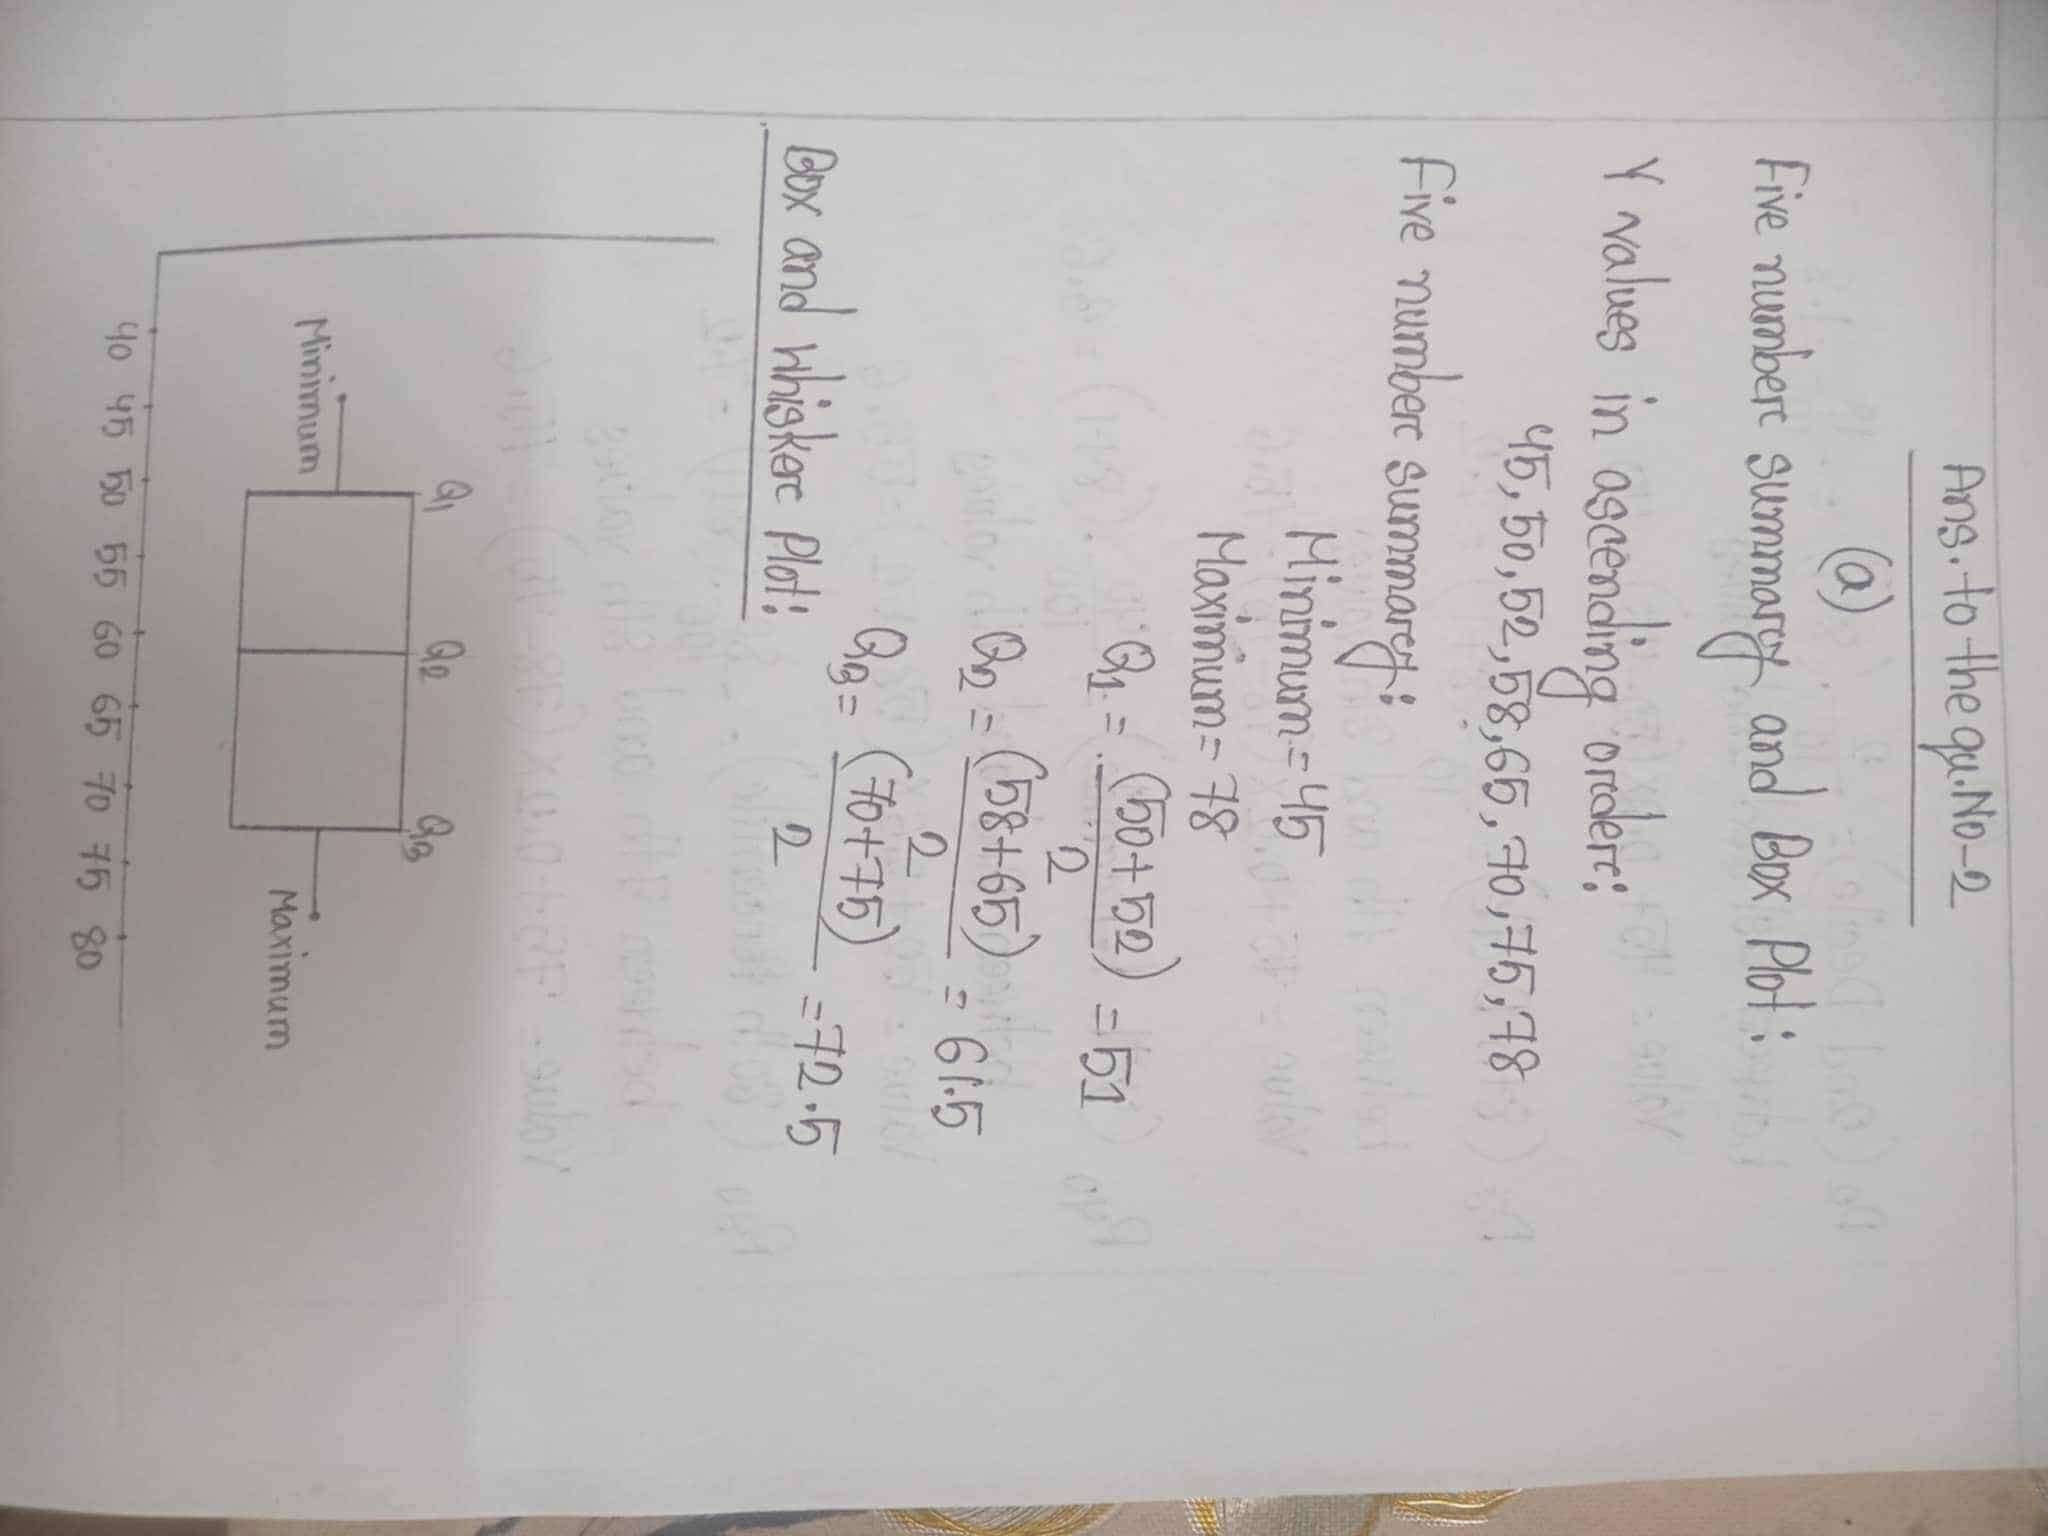 Ans. to the qu. No-2
(a)
Five number summary and Box Plot:
Y values in ascending order:
45, 50, 52, 58, 65, 70, 75, 78
Five number summary:
Minimum = 45
Maximum = 78
Q1 = (50+52)/2 = 51
Q2 = (58+65)/2 = 61.5
Q3 = (70+75)/2 = 72.5
Box and whisker Plot:
Q1 Q2 Q3
Minimum
Maximum
40 45 50 55 60 65 70 75 80